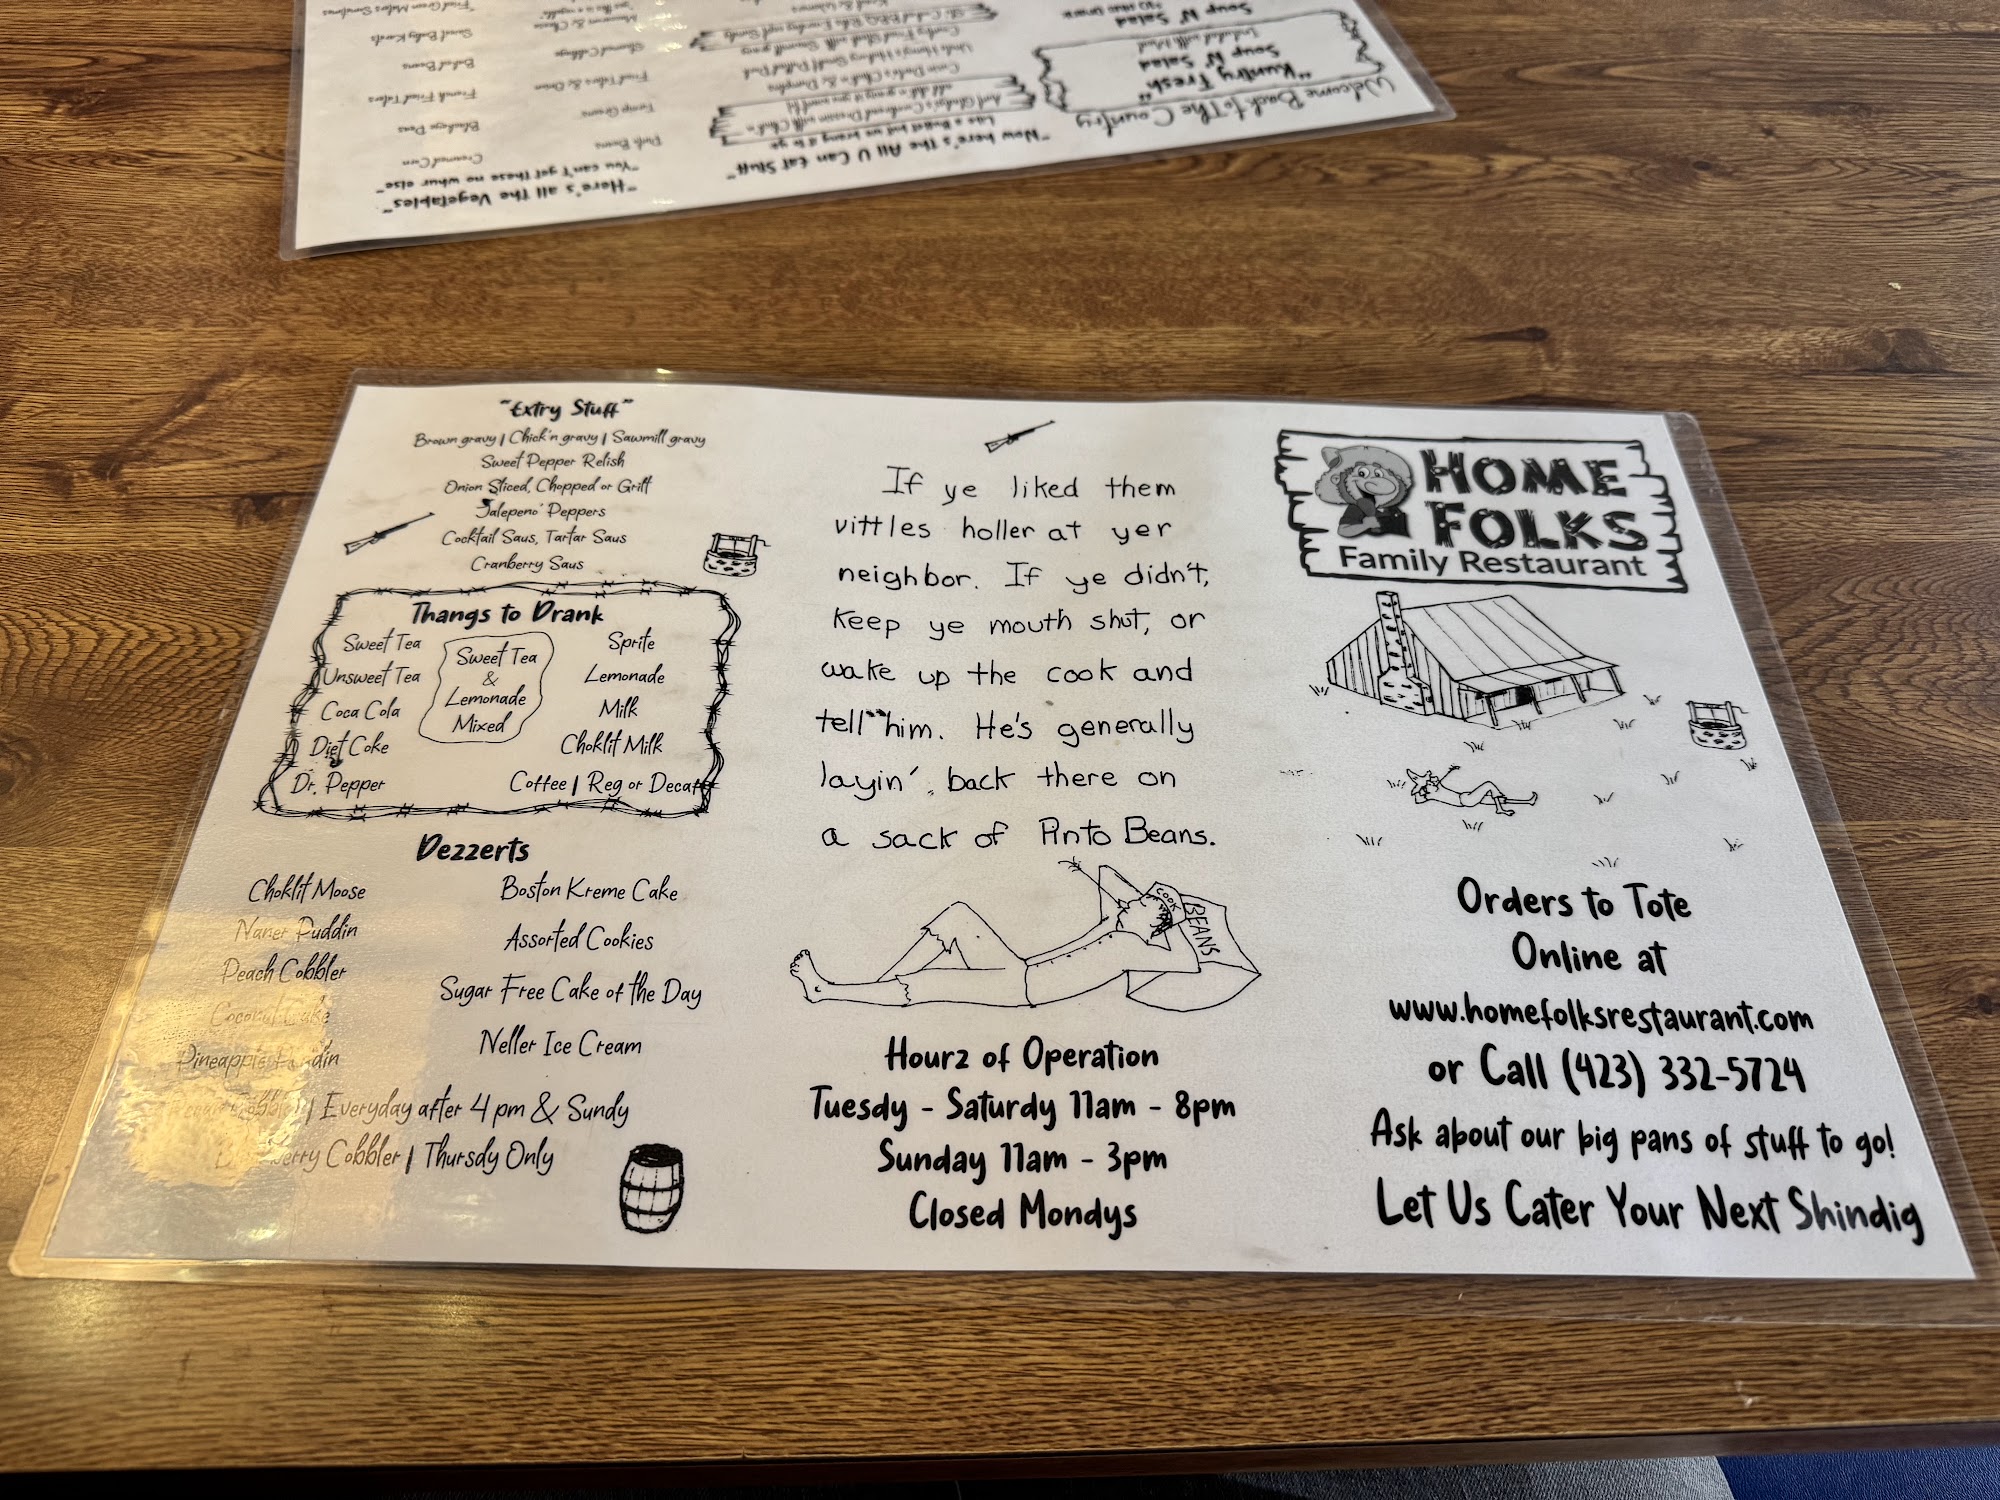 "Extry Stuff"
Brown gravy | Chick'n gravy | Sawmill gravy
Sweet Pepper Relish
Onion Sliced, Chopped or Grilt
Jalepeno' Peppers
Cocktail Saus, Tartar Saus
Cranberry Saus
Thangs to Drank
Sweet Tea
Unsweet Tea
Coca Cola
Diet Coke
Dr. Pepper
Sweet Tea
&
Lemonade
Mixed
Sprite
Lemonade
Milk
Choklit Milk
Coffee | Reg or Decaf
Dezzerts
Choklit Moose
Naner Puddin
Peach Cobbler
Coconut Cake
Pineapple
Boston Kreme Cake
Assorted Cookies
Sugar Free Cake of the Day
Neller Ice Cream
| Everyday after 4 pm & Sundy
Cobbler | Thursdy Only
If ye liked them
vittles holler at yer
neighbor. If ye didn't,
keep ye mouth shut, or
wake up the cook and
tell him. He's generally
layin' back there on
a sack of Pinto Beans.
COOK
BEANS
Hourz of Operation
Tuesdy - Saturdy 11am - 8pm
Sunday 11am - 3pm
Closed Mondys
HOME
FOLKS
Family Restaurant
Orders to Tote
Online at
www.homefolksrestaurant.com
or Call (423) 332-5724
Ask about our big pans of stuff to go!
Let Us Cater Your Next Shindig
Welcome Back to The Country
"Kuntry Fresh"
Soup N' Salad
Included with Meal
Soup N' Salad
"Now here's the All U Can Eat Stuff"
"Here's all the Vegetables"
"You can't get these no whur else"
Creamed Corn
Blackeye Peas
French Fried Taters
Baked Beans
Pinto Beans
Turnip Greens
Fried Taters & Onion